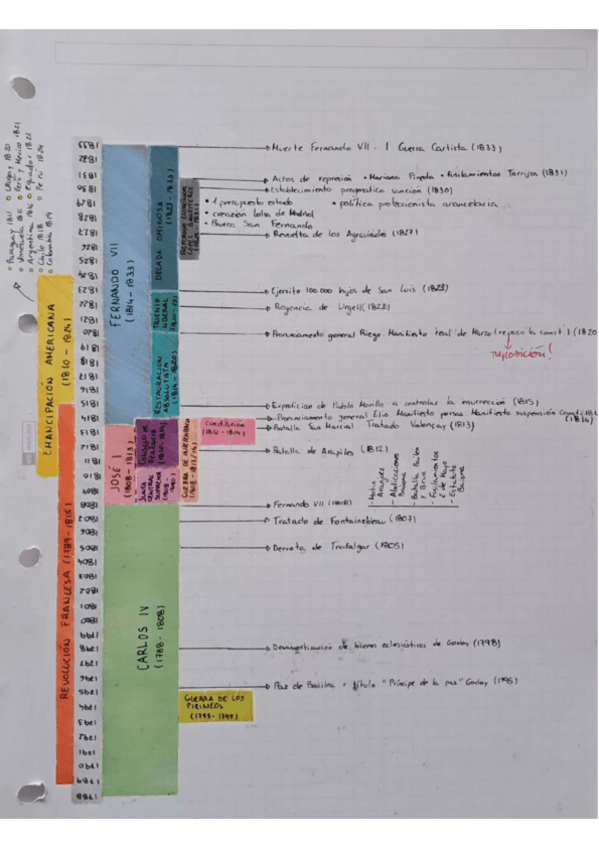 Paraguay 1811
Venezuela 1811
Argentina 1816
Chile 1818
Colombia 1819
Uruguay 1820
Perú y México 1821
Ecuador 1822
Perú 1824
EMANCIPACIÓN AMERICANA
(1810 - 1824)
REVOLUCIÓN FRANCESA (1789-1815)
1833
1832
1831
1830
1829
1828
1827
1826
1825
1824
1823
1822
1821
1820
1819
1818
1817
1816
1815
1814
1813
1812
1811
1810
1808
1807
1806
1805
1804
1803
1802
1801
1800
1799
1798
1797
1796
1795
1794
1793
1792
1791
1790
1789
1788
FERNANDO VII
(1814 - 1833)
DÉCADA OMINOSA
(1823 - 1833)
TRIENIO
LIBERAL
(1820-1823)
RESTAURACIÓN
ABSOLUTISTA
(1814 - 1820)
JOSÉ I
(1808 - 1813)
CONSEJO DE
REGENCIA
JUNTA
CENTRAL
SUPREMA
GUERRA DE INDEPENDENCIA
(1808-1814)
Constitución
(1812 - 1814)
CARLOS IV
(1788 - 1808)
GUERRA DE LOS
PIRINEOS
(1793 - 1795)
Muerte Fernando VII - I Guerra Carlista (1833)
Actos de represión • Mariana Pineda • fusilamientos Torrijos (1831)
Establecimiento pragmática sanción (1830)
• 1 presupuesto estado • política proteccionista arancelaria
• creación bolsa de Madrid
• Banco San Fernando
Revuelta de los Agraviados (1827)
Ejército 100.000 hijos de San Luis (1823)
Regencia de Urgell (1822)
Pronunciamiento general Riego. Manifiesto real de Marzo (repuso la const.) (1820
reposición!
Expedición de Pablo Morillo a controlar la insurrección (1815)
Pronunciamiento general Elio Manifiesto persas. Manifiesto suspensión Constit. 1812
(1814)
Batalla San Marcial Tratado Valençay (1813)
Batalla de Arapiles (1812)
- Motín Aranjuez
- Abdicaciones Baiona
- Batalla Bailén y Bruc
- Fusilamientos 2 de Mayo
- Estatuto Baiona
Fernando VII (1808)
Tratado de Fontainebleau (1807)
Derrota de Trafalgar (1805)
Desamortización de bienes eclesiásticos de Godoy (1798)
Paz de Basilea + título "Príncipe de la paz" Godoy (1795)